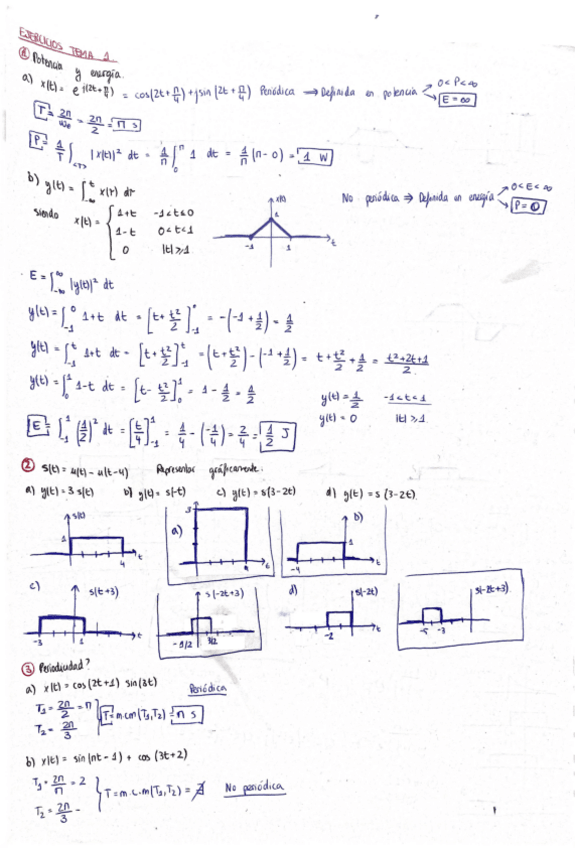 EJERCICIOS TEMA 1
① Potencia y energía.
a) x(t) = e^j(2t+π/4) = cos(2t+π/4)+jsin(2t+π/4) Periódica ⟹ Definida en potencia 0<P<∞ E=∞
T = 2π/ω₀ = 2π/2 = π s
P = 1/T ∫<T> |x(t)|² dt = 1/π ∫₀^π 1 dt = 1/π (π-0) = 1 W
b) y(t) = ∫_-∞^t x(τ) dτ
No periódica ⟹ Definida en energía 0<E<∞ P=0
siendo x(t) = { 1+t -1<t≤0
1-t 0<t<1
0 |t|≥1
x(t) 1 -1 1 t
E = ∫_-∞^∞ |y(t)|² dt
y(t) = ∫_-1^0 1+t dt = [t+t²/2]_-1^0 = -(-1+1/2) = 1/2
y(t) = ∫_-1^t 1+t dt = [t+t²/2]_-1^t = (t+t²/2)-(-1+1/2) = t+t²/2+1/2 = t²+2t+1/2
y(t) = ∫_0^1 1-t dt = [t-t²/2]_0^1 = 1-1/2 = 1/2
y(t) = 1/2 -1<t<1
y(t) = 0 |t|≥1
E = ∫_-1^1 (1/2)² dt = [t/4]_-1^1 = 1/4-(-1/4) = 2/4 = 1/2 J
② s(t) = u(t)-u(t-4) Representar gráficamente.
a) y(t) = 3 s(t) b) y(t) = s(-t) c) y(t) = s(3-2t) d) y(t) = s(3-2t)
s(t) 1 4 t
a) 3 t
b) 1 -4 t
c) s(t+3) -3 1 t
s(-2t+3) -1/2 3/2
d) s(-2t) -2 t
s(-2t+3) -5 -3
③ Periodicidad?
a) x(t) = cos(2t+1) sin(3t) Periódica
T₁ = 2π/2 = π
T₂ = 2π/3
T = m.c.m(T₁,T₂) = π s
b) x(t) = sin(πt-1) + cos(3t+2)
T₁ = 2π/π = 2
T₂ = 2π/3
T = m.c.m(T₁,T₂) = ∄ No periódica